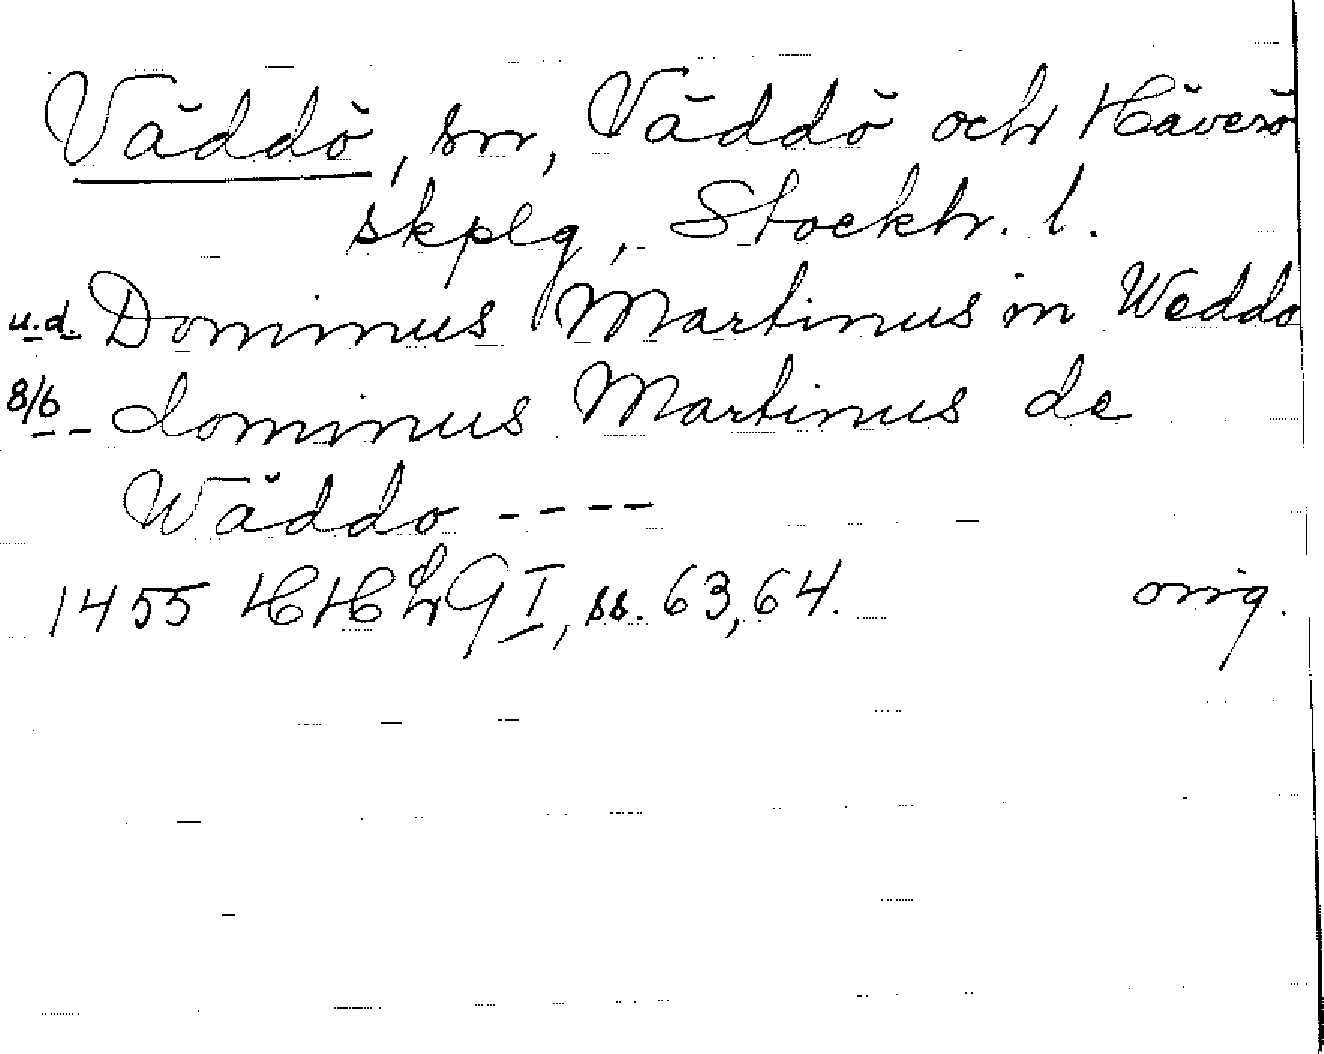 Väddö, sn, Väddö och Häverö
skplg, Stockh. l.
u.d. Dominus Martinus in Weddo
8/6 -- dominus Martinus de
Wäddo ----
1455 HHLG I, ss. 63, 64. orig.